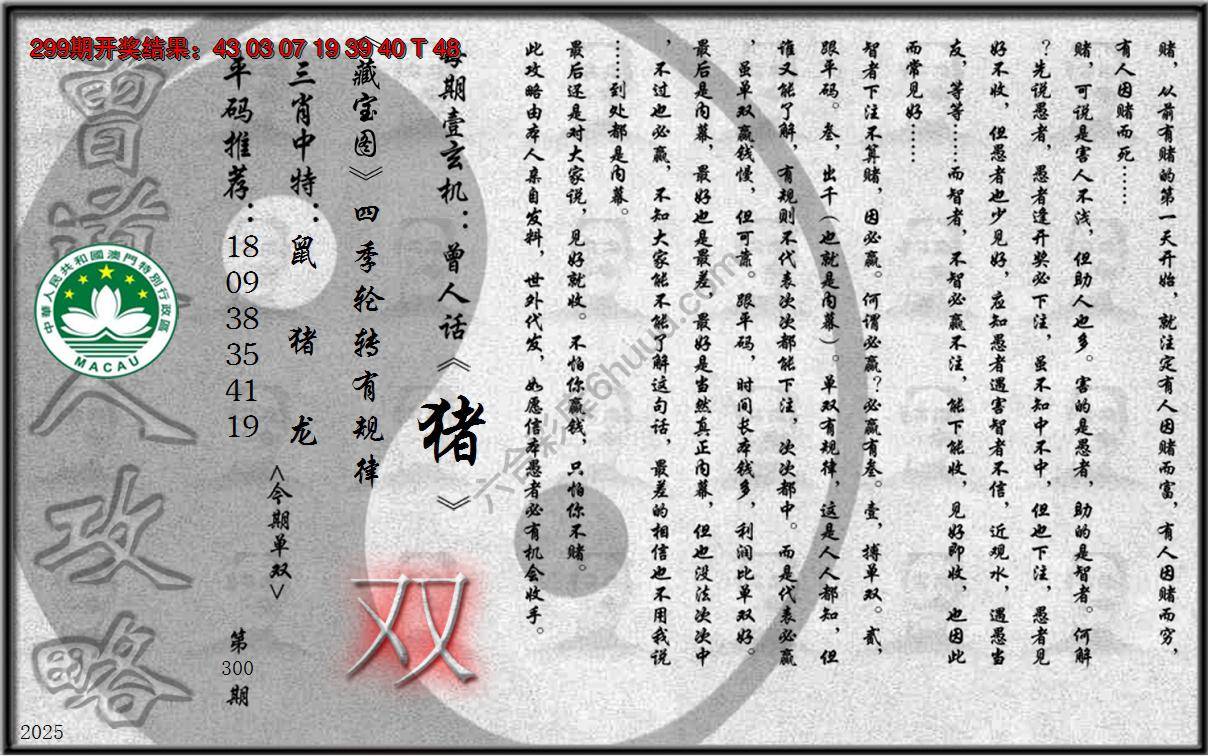 299期开奖结果：43 03 07 19 39 40 T 48
赌，从前有赌的第一天开始，就注定有人因赌而富，有人因赌而穷，
有人因赌而死……
赌，可说是害人不浅，但助人也多。害的是愚者，助的是智者。何解
？先说愚者，愚者逢开奖必下注，虽不知中不中，但也下注，愚者见
好不收，但愚者也少见好，应知愚者遇害智者不信，近观水，遇愚当
友，等等……而智者，不智必赢不注，能下能收，见好即收，也因此
而常见好……
智者下注不算赌，因必赢。何谓必赢？必赢有叁。壹，搏单双。贰，
跟平码。叁，出千（也就是内幕）。单双有规律，这是人人都知，但
谁又能了解，有规则不代表次次都能下注，次次都中。而是代表必赢
，虽单双赢钱慢，但可靠。跟平码，时间长本钱多，利润比单双好。
最后是内幕，最好也是最差，最好是当然真正内幕，但也没法次次中
，不过也必赢，不知大家能不能了解这句话，最差的相信也不用我说
……到处都是内幕。
最后还是对大家说，见好就收。不怕你赢钱，只怕你不赌。
此攻略由本人亲自发料，世外代发，如愿信本愚者必有机会收手。
每期壹玄机：曾人话《猪》
《藏宝图》四季轮转有规律
双
三肖中特：鼠 猪 龙
<今期单双>
平码推荐：
18
09
38
35
41
19
第
300
期
曾道人攻略
中華人民共和國澳門特別行政區
MACAU
六合彩库6huuu.com
2025